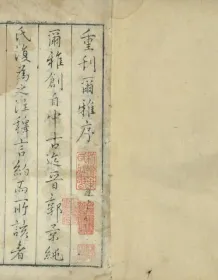 重刊爾雅序
爾雅創自中古迄晉郭景純
氏復為之注釋言約而所該者